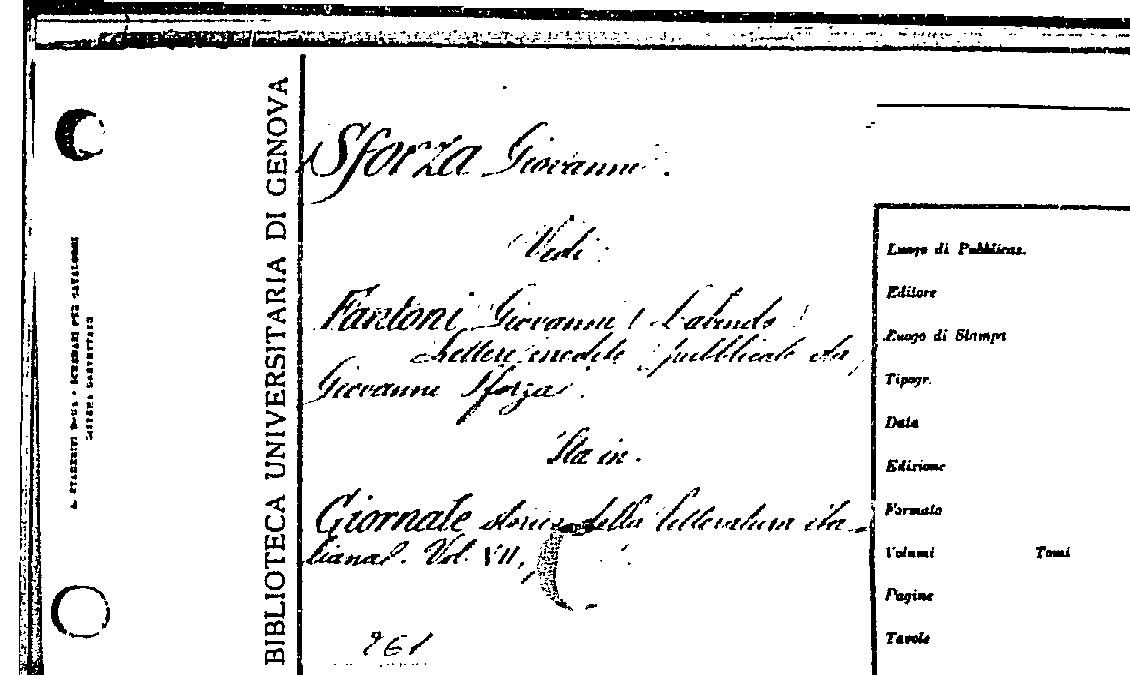 BIBLIOTECA UNIVERSITARIA DI GENOVA
Sforza Giovanni.
Vedi:
Fantoni Giovanni (Labindo)
Lettere inedite pubblicate da
Giovanni Sforza.
Sta in.
Giornale storico della letteratura ita-
liana. Vol. VII,
261
Luogo di Pubblicaz.
Editore
Luogo di Stampa
Tipogr.
Data
Edizione
Formato
Volumi Tomi
Pagine
Tavole